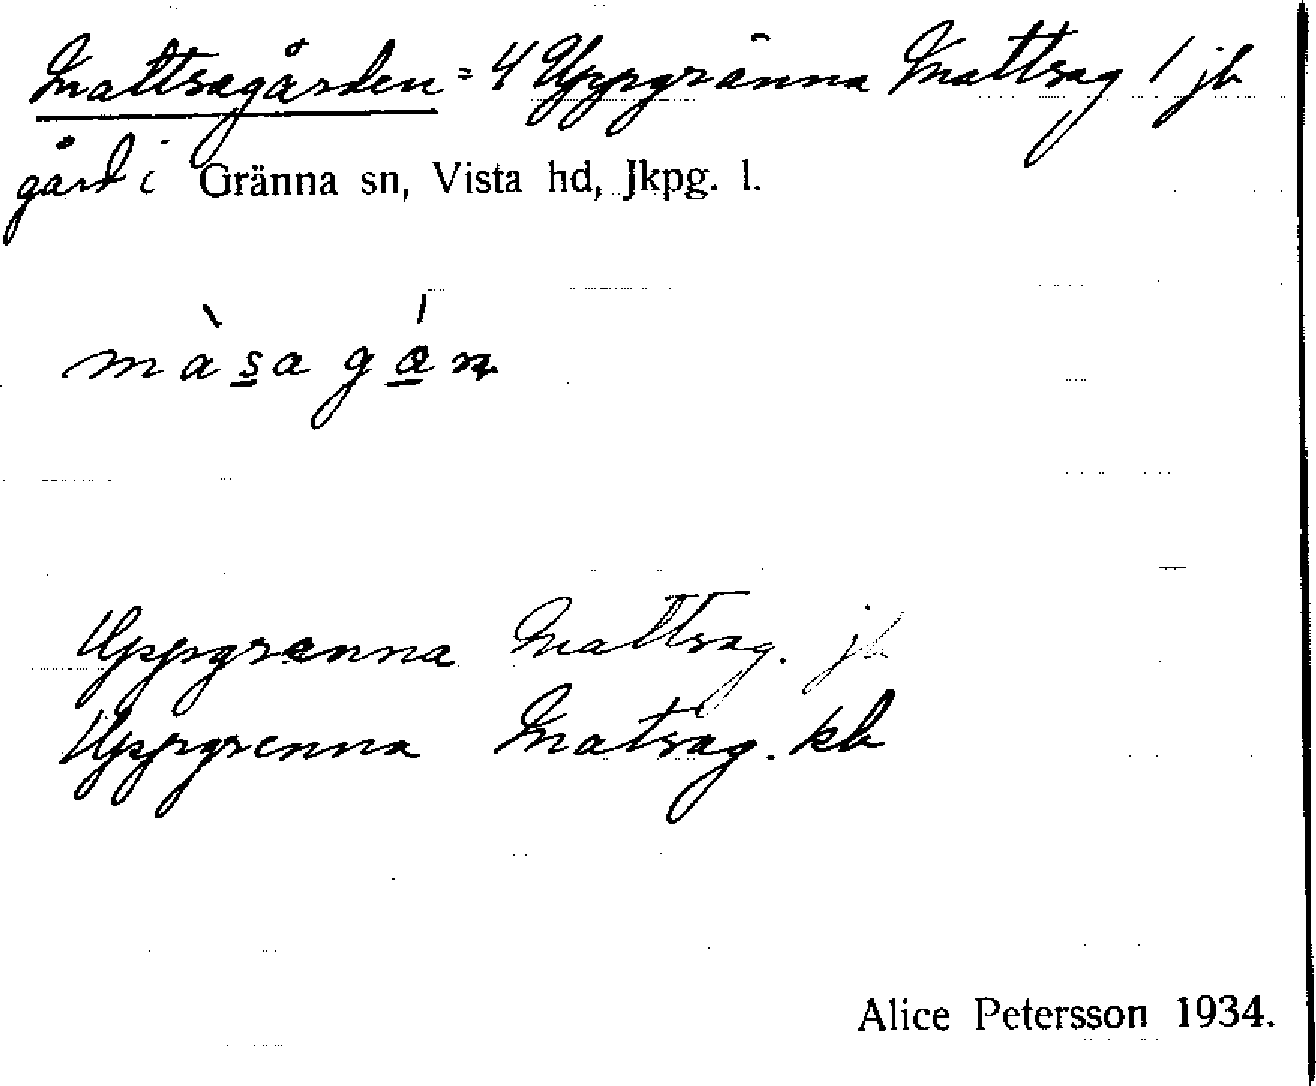 Mattsagården = 4 Uppgränna Mattsag 1 jb
gård i Gränna sn, Vista hd, Jkpg. l.
màs̲a gá̲n
Uppgrenna Mattsag. jb
Uppgrenna Matsag. kb
Alice Petersson 1934.